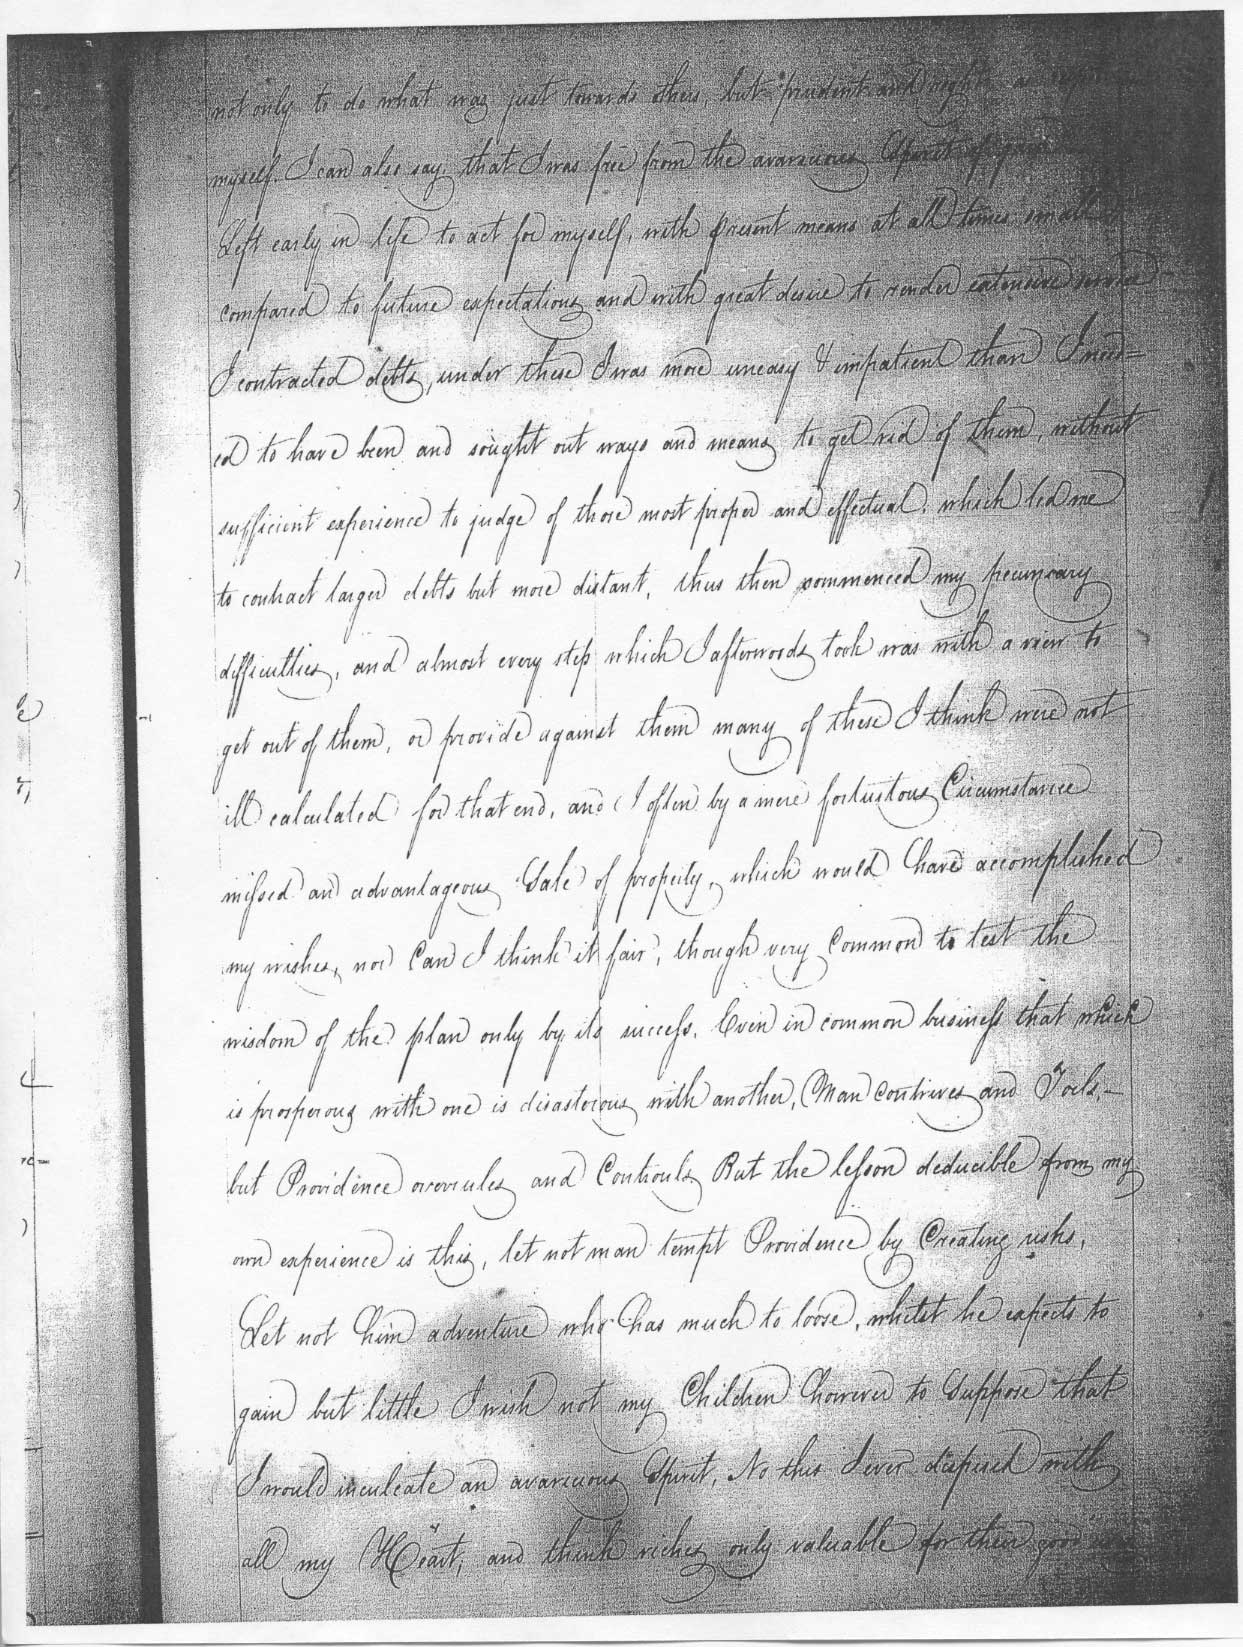 not only to do what was just towards others, but prudent and right
myself. I can also say, that I was free from the avaricious Spirit of
Left early in life to act for myself, with present means at all times small
compared to future expectations and with great desire to render extensive service
I contracted debts, under these I was more uneasy & impatient than I need=
ed to have been and sought out ways and means to get rid of them, without
sufficient experience to judge of those most proper and effectual. which led me
to contract larger debts but more distant, thus then commenced my pecuniary
difficulties, and almost every step which I afterwards took was with a view to
get out of them, or provide against them many of these I think were not
ill calculated for that end, and I often by a mere fortuitous Circumstance
missed an advantageous Sale of property, which would have accomplished
my wishes, nor Can I think it fair, though very Common to test the
wisdom of the plan only by its success. Even in common business that which
is prosperous with one is disasterous with another, Man contrives and Toils,-
but Providence overrules and Controuls But the lesson deducible from my
own experience is this, let not man tempt Providence by Creating risks,
Let not him adventure who has much to loose, whilst he expects to
gain but little I wish not my Children however to Suppose that
I would inculcate an avaricious Spirit, No this I ever dispised with
all my Heart, and think riches only valuable for their good